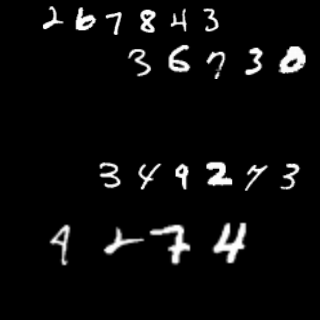 267843
36730
349273
4274